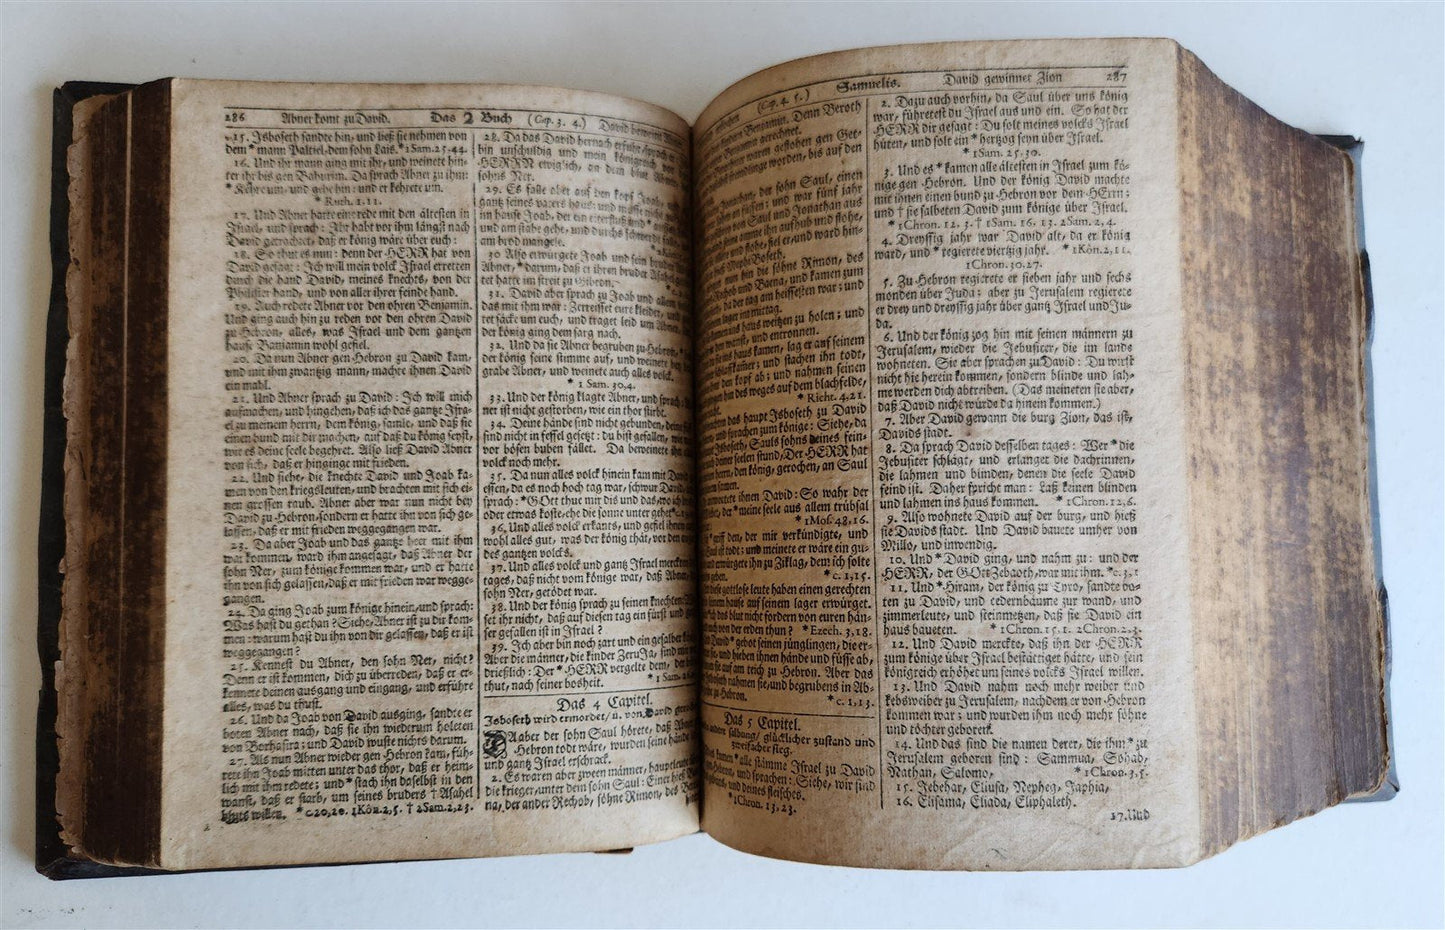 286 Abner komt zu David. Das 2 Buch (Cap. 3. 4.) David beweinet
15. Isboseth sandte hin, und ließ sie nehmen von
dem * mann Paltiel, dem sohn Lais. * 1 Sam. 25, 44.
16. Und ihr mann ging mit ihr, und weinete hin-
ter ihr bis gen Bahurim. Da sprach Abner zu ihm:
* Kehre um, und gehe hin: und er kehrete um.
* Ruth. 1. 11.
17. Und Abner hatte eine rede mit den ältesten in
Israel, und sprach: Ihr habt vor ihm längst nach
David getrachtet, daß er könig wäre über euch:
18. So thut es nun: denn der HERR hat von
David gesagt: Ich will mein volck Israel erretten
durch die hand David, meines knechts, von der
Philister hand, und von aller ihrer feinde hand.
19. Auch redete Abner vor den ohren Benjamin.
Und ging auch hin zu reden vor den ohren David
zu Hebron, alles, was Israel und dem gantzen
hause Benjamin wohl gefiel.
20. Da nun Abner gen Hebron zu David kam,
und mit ihm zwantzig mann, machte ihnen David
ein mahl.
21. Und Abner sprach zu David: Ich will mich
aufmachen, und hingehen, daß ich das gantze Isra-
el zu meinem herrn, dem könig, samle, und daß sie
einen bund mit dir machen, auf daß du könig seyst,
wie es deine seele begehret. Also ließ David Abner
von sich, daß er hinginge mit frieden.
22. Und siehe, die knechte David und Joab ka-
men von den kriegsleuten, und brachten mit sich ei-
nen grossen raub. Abner aber war nun nicht bey
David zu Hebron, sondern er hatte ihn von sich ge-
lassen, daß er mit frieden weggegangen war.
23. Da aber Joab und das gantze heer mit ihm
war kommen, ward ihm angesagt, daß Abner der
sohn Ner, zum könige kommen war, und er hatte
ihn von sich gelassen, daß er mit frieden war wegge-
gangen.
24. Da ging Joab zum könige hinein, und sprach:
Was hast du gethan? Siehe, Abner ist zu dir kom-
men: warum hast du ihn von dir gelassen, daß er ist
weggegangen?
25. Kennest du Abner, den sohn Ner, nicht?
Denn er ist kommen, dich zu überreden, daß er er-
kennete deinen ausgang und eingang, und erführe
alles, was du thust.
26. Und da Joab von David ausging, sandte er
boten Abner nach, daß sie ihn wiederum holeten
von Borhasira; und David wuste nichts darum.
27. Als nun Abner wieder gen Hebron kam, füh-
rete ihn Joab mitten unter das thor, daß er heim-
lich mit ihm redete; und * stach ihn daselbst in den
wanst, daß er starb, um seines bruders † Asahel
bluts willen. * c. 20, 10. 1 Kön. 2, 5. † 2 Sam. 2, 23.
28. Da das David hernach erfuhr, sprach er:
bin unschuldig und mein königreich vor
HERRN ewiglich, an dem blut Abner
sohns Ner.
29. Es falle aber auf den kopf Joab,
gantz seines vaters haus: und müsse nicht
im hause Joab, der ein eiterfluß und * aussatz
und am stabe gehe, und durchs schwerdt falle
am brod mangele.
30 Also erwürgete Joab und sein bruder
Abner, * darum, daß er ihren bruder Asahel
tet hatte im streit zu Gibeon.
31. David aber sprach zu Joab und allem
das mit ihm war: Zerreisset eure kleider, und
tet säcke um euch, und traget leid um Abner.
der könig ging dem sarg nach.
32. Und da sie Abner begruben zu Hebron,
der könig seine stimme auf, und weinete bey
grabe Abner, und weinete auch alles volck.
* 1 Sam. 30, 4.
33. Und der könig klagte Abner, und sprach:
ner ist nicht gestorben, wie ein thor stirbt.
34. Deine hände sind nicht gebunden, deine
sind nicht in fessel gesetzt: du bist gefallen, wie
vor bösen buben fället. Da beweinete ihn
volck noch mehr.
35. Da nun alles volck hinein kam mit David
essen, da es noch hoch tag war, schwur David
sprach: * GOtt thue mir dis und das, wo ich
oder etwas koste, ehe die sonne unter gehet
36. Und alles volck erkants, und gefiel ihnen
wohl alles gut, was der könig thät, vor den augen
des gantzen volcks.
37. Und alles volck und gantz Israel merckten
tages, daß nicht vom könige war, daß Abner,
sohn Ner, getödet war.
38. Und der könig sprach zu seinen knechten:
set ihr nicht, daß auf diesen tag ein fürst und
ser gefallen ist in Israel?
39. Ich aber bin noch zart und ein gesalbter
Aber die männer, die kinder ZeruJa, sind mir
drießlich: Der * HERR vergelte dem, der
thut, nach seiner bosheit. * 1 Sam.
Das 4 Capitel.
Isboseth wird ermordet, u. von David
DA aber der sohn Saul hörete, daß Abner
Hebron todt wäre, wurden seine hände
und gantz Israel erschrack.
2. Es waren aber zween männer, hauptleute
die krieger, unter dem sohn Saul: Einer hieß
na, der ander Rechob, söhne Rimon, des
(Cap. 4. 5.) Samuelis. David gewinnet Zion 287
kindern Benjamin. Denn Beroth
Benjamin gerechnet.
waren geflohen gen Get-
fremdlinge worden, bis auf den
Jonathan, der sohn Saul, einen
an füssen; und war fünf jahr
von Saul und Jonathan aus
seine amme ihn aufhub und flohe,
und flohe, fiel er, und ward hin-
MephiBoseth.
nun hin die söhne Rimon, des
Rechob und Baena, und kamen zum
da der tag am heissesten war; und
lager im mittag.
ins haus weitzen zu holen; und
wanst, und entronnen.
ins haus kamen, lag er auf seinem
schlafkamer; und stachen ihn todt,
den kopf ab; und nahmen seinen
hin des weges auf dem blachfelde,
* Richt. 4, 21.
das haupt Isboseth zu David
und sprachen zum könige: Siehe, da
Isboseth, Sauls sohns deines fein-
deiner seelen stund, Der HERR hat
herrn, den könig, gerochen, an Saul
samen.
antwortete ihnen David: So wahr der
der * meine seele aus allem trübsal
* 1 Mos. 48, 16.
griff den, der mir verkündigte, und
Saul ist todt; und meinete er wäre ein gu-
und erwürgete ihn zu Ziklag, dem ich solte
geben. * c. 1, 15.
diese gottlose leute haben einen gerechten
in seinem hause auf seinem lager erwürget.
das blut nicht fordern von euren hän-
von der erden thun? * Ezech. 3, 18.
David * gebot seinen jünglingen, die er-
sie, und hieben ihnen hände und füsse ab,
sie auf am teich zu Hebron. Aber das
Isboseth nahmen sie, und begrubens in Ab-
zu Hebron. * c. 1, 13.
Das 5 Capitel.
andere salbung, glücklicher zustand und
zweifacher sieg.
kamen * alle stämme Israel zu David
Hebron, und sprachen: Siehe, wir sind
und deines fleisches.
* 1 Chron. 13, 23.
2. Dazu auch vorhin, da Saul über uns könig
war, führetest du Israel aus und ein. So hat der
HERR dir gesagt: Du solt meines volcks Israel
hüten, und solt ein * hertzog seyn über Israel.
* 1 Sam. 25. 30.
3. Und es * kamen alle ältesten in Israel zum kö-
nige gen Hebron. Und der könig David machte
mit ihnen einen bund zu Hebron vor dem HErrn;
und † sie salbeten David zum könige über Israel.
* 1 Chron. 12. 3. † 1 Sam. 16. 13. 2 Sam. 2, 4.
4. Dreyssig jahr war David alt, da er könig
ward, und * regierete viertzig jahr. * 1 Kön. 2, 11.
1 Chron. 30. 27.
5. Zu Hebron regierete er sieben jahr und sechs
monden über Juda: aber zu Jerusalem regierete
er drey und dreyssig jahr über gantz Israel und Ju-
da.
6. Und der könig zog hin mit seinen männern zu
Jerusalem, wieder die Jebusiter, die im lande
wohneten. Sie aber sprachen zu David: Du wirst
nicht hie herein kommen, sondern blinde und lah-
me werden dich abtreiben. (Das meineten sie aber,
daß David nicht würde da hinein kommen.)
7. Aber David gewann die burg Zion, das ist,
Davids stadt.
8. Da sprach David desselben tages: Wer * die
Jebusiter schlägt, und erlanget die dachrinnen,
die lahmen und blinden, denen die seele David
feind ist. Daher spricht man: Laß keinen blinden
und lahmen ins haus kommen. * 1 Chron. 12, 6.
9. Also wohnete David auf der burg, und hieß
sie Davids stadt. Und David bauete umher von
Millo, und inwendig.
10. Und * David ging, und nahm zu: und der
HERR, der GOtt Zebaoth, war mit ihm. * c. 3, 1
11. Und * Hiram, der könig zu Tyro, sandte bo-
ten zu David, und cedernbäume zur wand, und
zimmerleute, und steinmetzen, daß sie David ein
haus baueten. * 1 Chron. 15, 1. 2 Chron. 2, 3.
12. Und David merckte, daß ihn der HERR
zum könige über Israel bestättiget hätte, und sein
königreich erhöhet um seines volcks Israel willen.
13. Und David nahm noch mehr weiber und
kebsweiber zu Jerusalem, nachdem er von Hebron
kommen war; und wurden ihm noch mehr söhne
und töchter geboren.
14. Und das sind die namen derer, die ihm * zu
Jerusalem geboren sind: Sammua, Sobab,
Nathan, Salomo, * 1 Chron. 3, 5.
15. Jebehar, Elisua, Nepheg, Japhia,
16. Elisama, Eliada, Eliphaleth.
17. Und